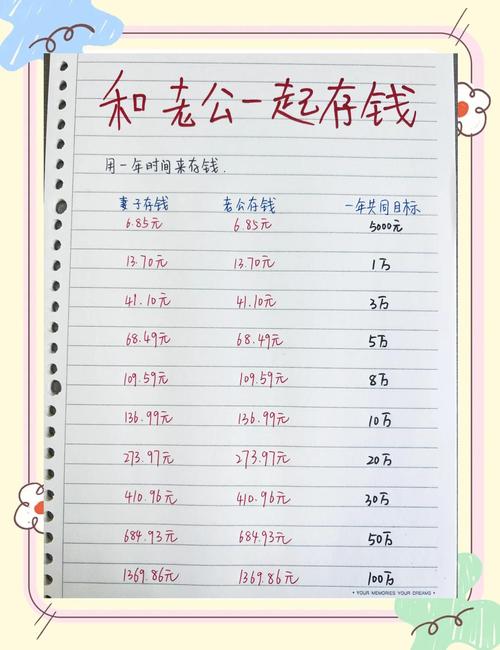 和老公一起存钱
用一年时间来存钱.
妻子存钱 老公存钱 一年共同目标
6.85元 6.85元 5000元
13.70元 13.70元 1万
41.10元 41.10元 3万
68.49元 68.49元 5万
109.59元 109.59元 8万
136.99元 136.99元 10万
273.97元 273.97元 20万
410.96元 410.96元 30万
684.93元 684.93元 50万
1369.86元 1369.86元 100万
• YOUR MEMORIES YOUR DREAMS •